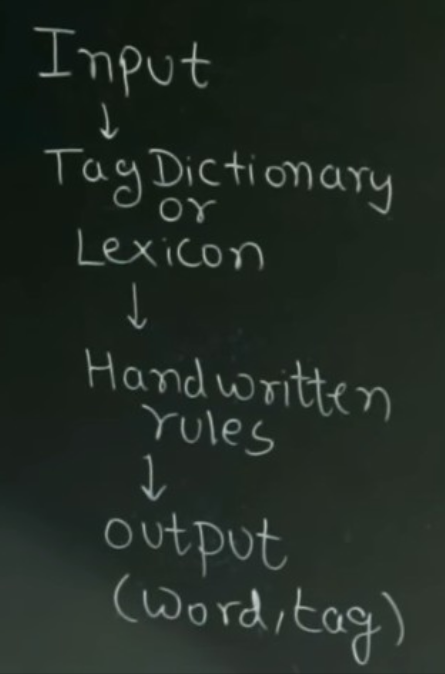 Input
↓
Tag Dictionary
or
Lexicon
↓
Handwritten
rules
↓
output
(word, tag)